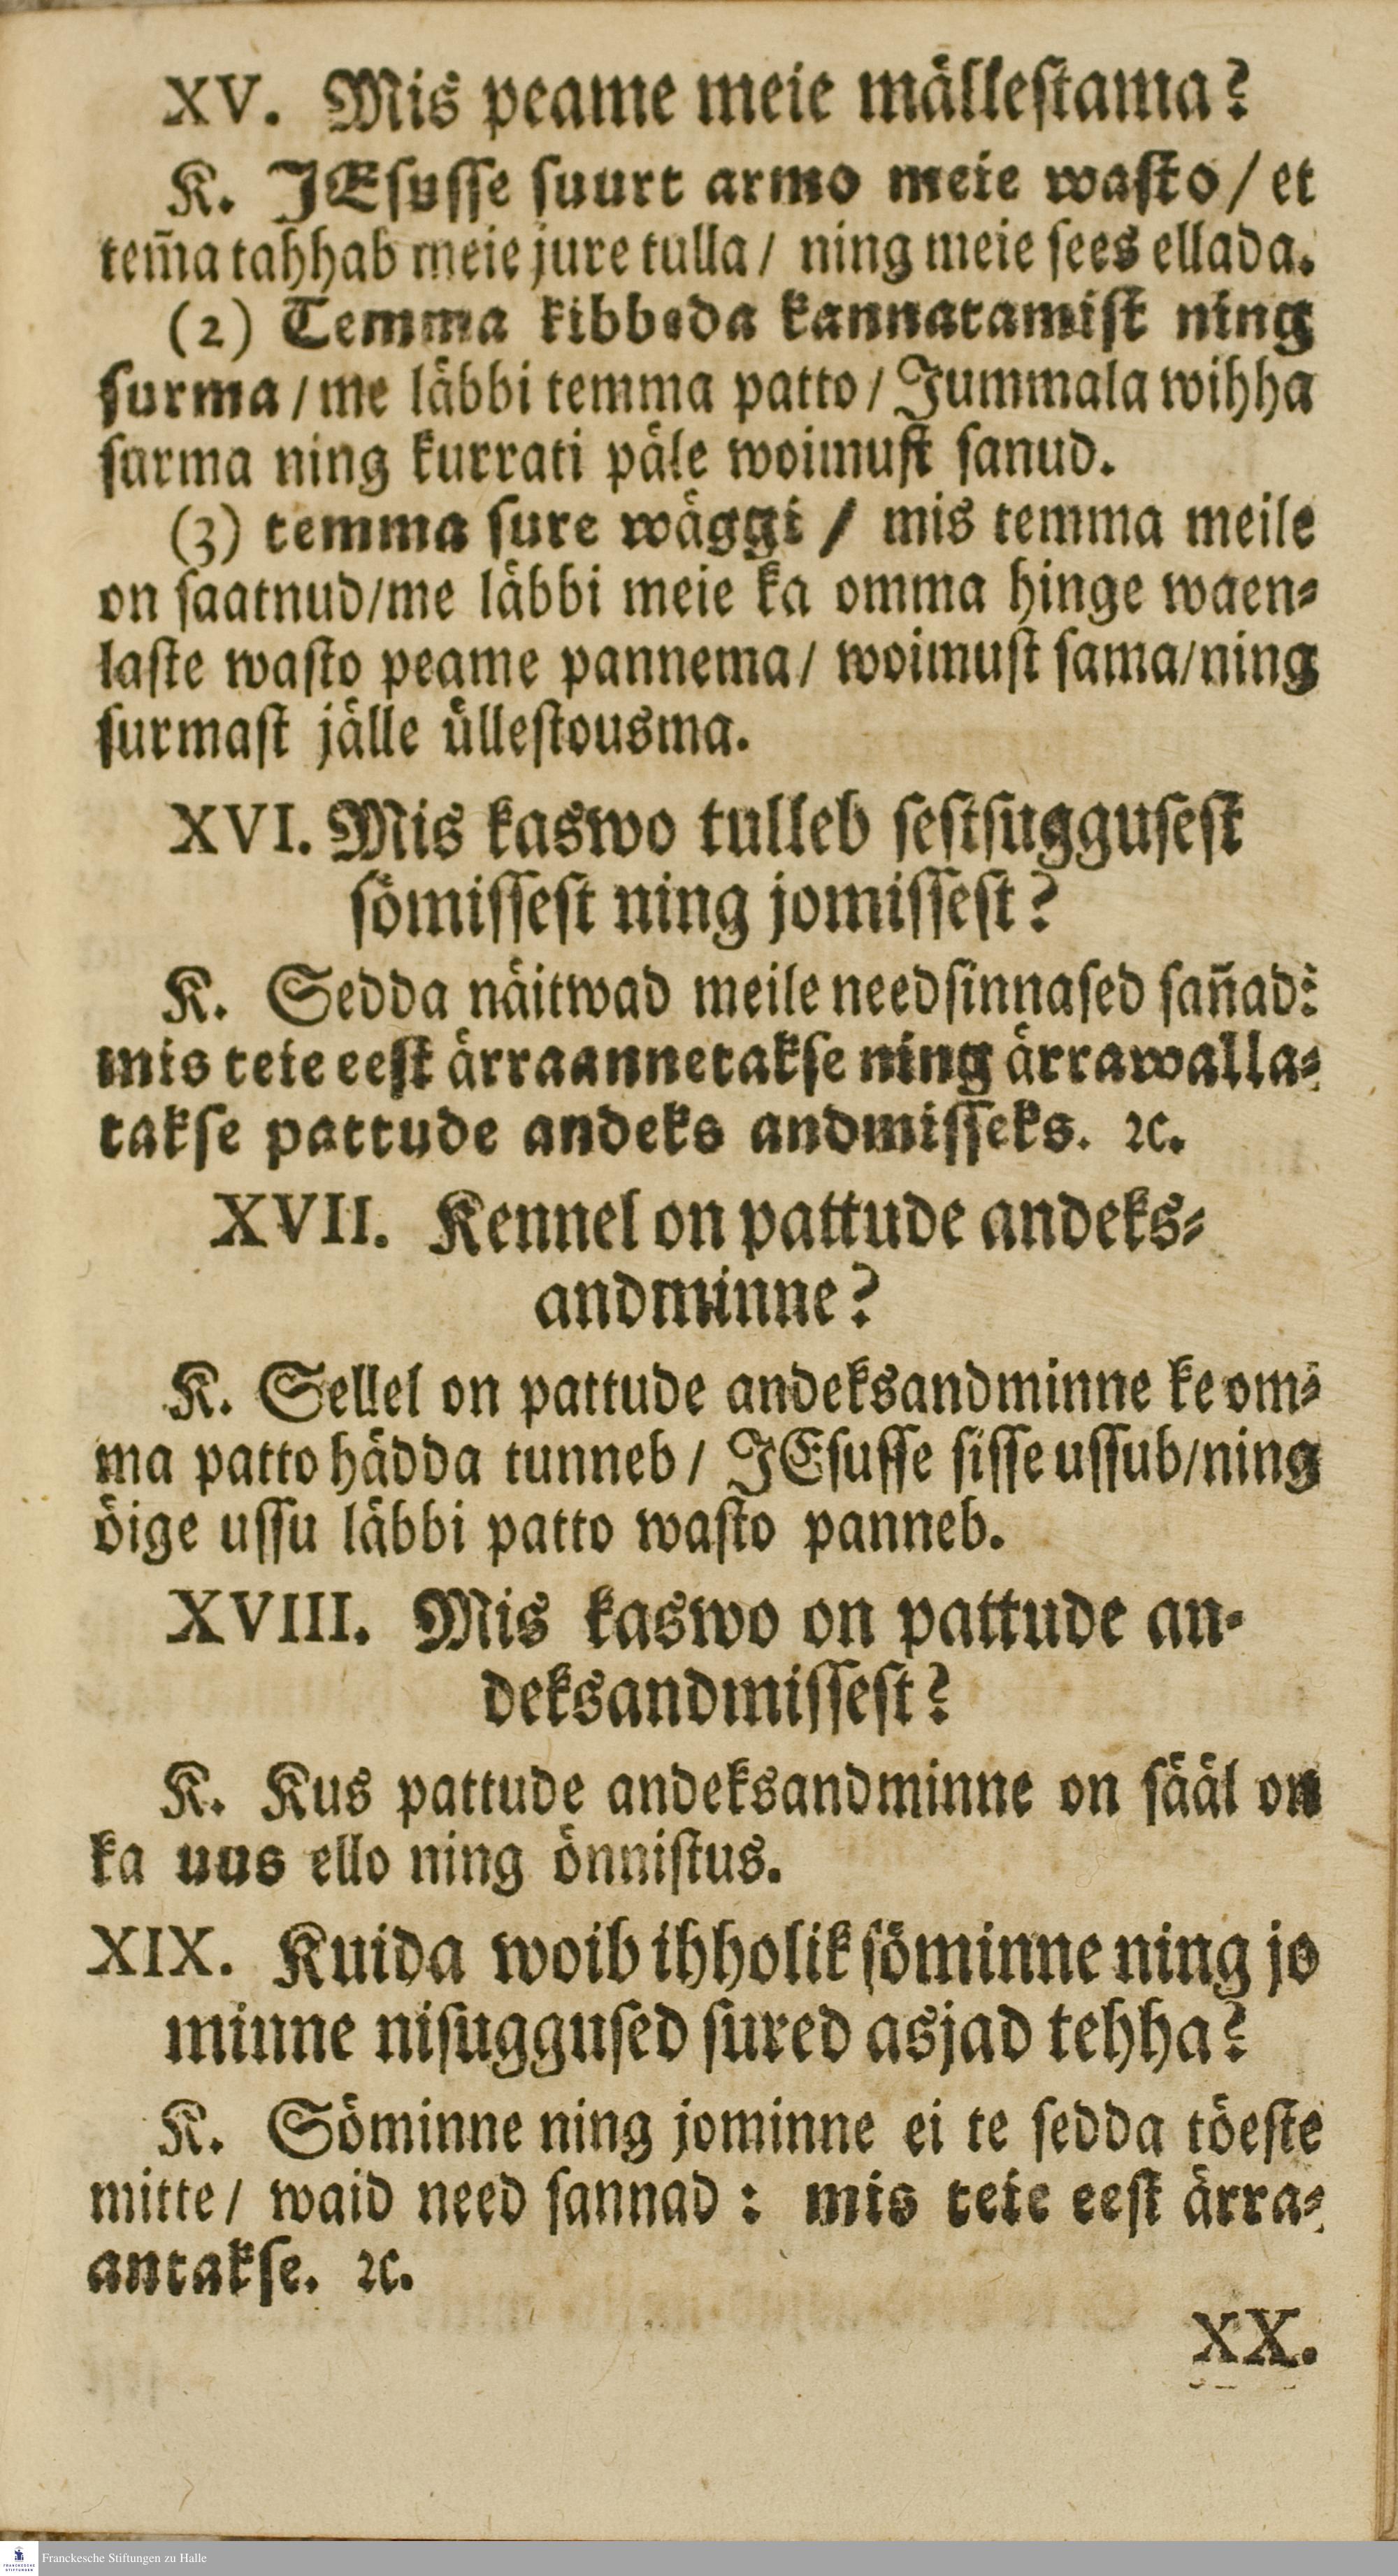 XV. Mis peame meie mälleſtama?
K. JEſusſe ſuurt armo meie waſto / et
tem̃a tahhab meie jure tulla / ning meie ſees ellada.
(2) Temma kibbeda kannatamiſt ning
ſurma / me läbbi temma patto / Jummala wihha
ſurma ning kurrati päle woimuſt ſanud.
(3) temma ſure wäggi / mis temma meile
on ſaatnud/me läbbi meie ka omma hinge waen⸗
laſte waſto peame pannema / woimuſt ſama/ning
ſurmaſt jälle ülleſtousma.
XVI. Mis kaswo tulleb ſeſtſugguſeſt
ſömiſſeſt ning jomiſſeſt?
K. Sedda näitwad meile needſinnaſed ſañad:
mis teie eeſt ärraannetakſe ning ärrawalla⸗
takſe pattude andeks andmiſſeks. ꝛc.
XVII. Kennel on pattude andeks⸗
andminne?
K. Sellel on pattude andeksandminne ke om⸗
ma patto hädda tunneb / JEſuſſe ſiſſe uſſub/ning
öige uſſu läbbi patto waſto panneb.
XVIII. Mis kaswo on pattude an⸗
deksandmiſſeſt?
K. Kus pattude andeksandminne on ſääl on
ka uus ello ning önniſtus.
XIX. Kuida woib ihholik ſöminne ning jo
minne niſugguſed ſured asjad tehha?
K. Söminne ning jominne ei te ſedda töeſte
mitte / waid need ſannad : mis teie eeſt ärra⸗
antakſe. ꝛc.
XX.
FRANCKESCHE STIFTUNGEN
Franckesche Stiftungen zu Halle